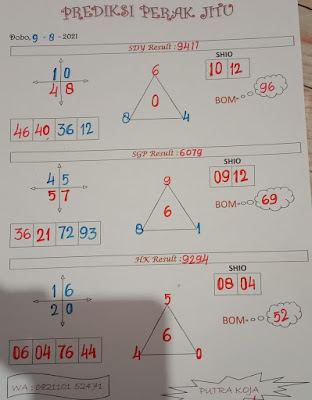 PREDIKSI PERAK JITU
Dobo, 9 - 8 - 2021
SDY Result : 9411
1 0
4 8
6
0
8 4
SHIO
10 12
BOM 96
46 40 36 12
SGP Result : 6079
4 5
5 7
9
6
8 1
SHIO
09 12
BOM 69
36 21 72 93
HK Result : 9294
1 6
2 0
5
6
4 0
SHIO
08 04
BOM 52
06 04 76 44
WA : 0821101 52471
PUTRA KOJA